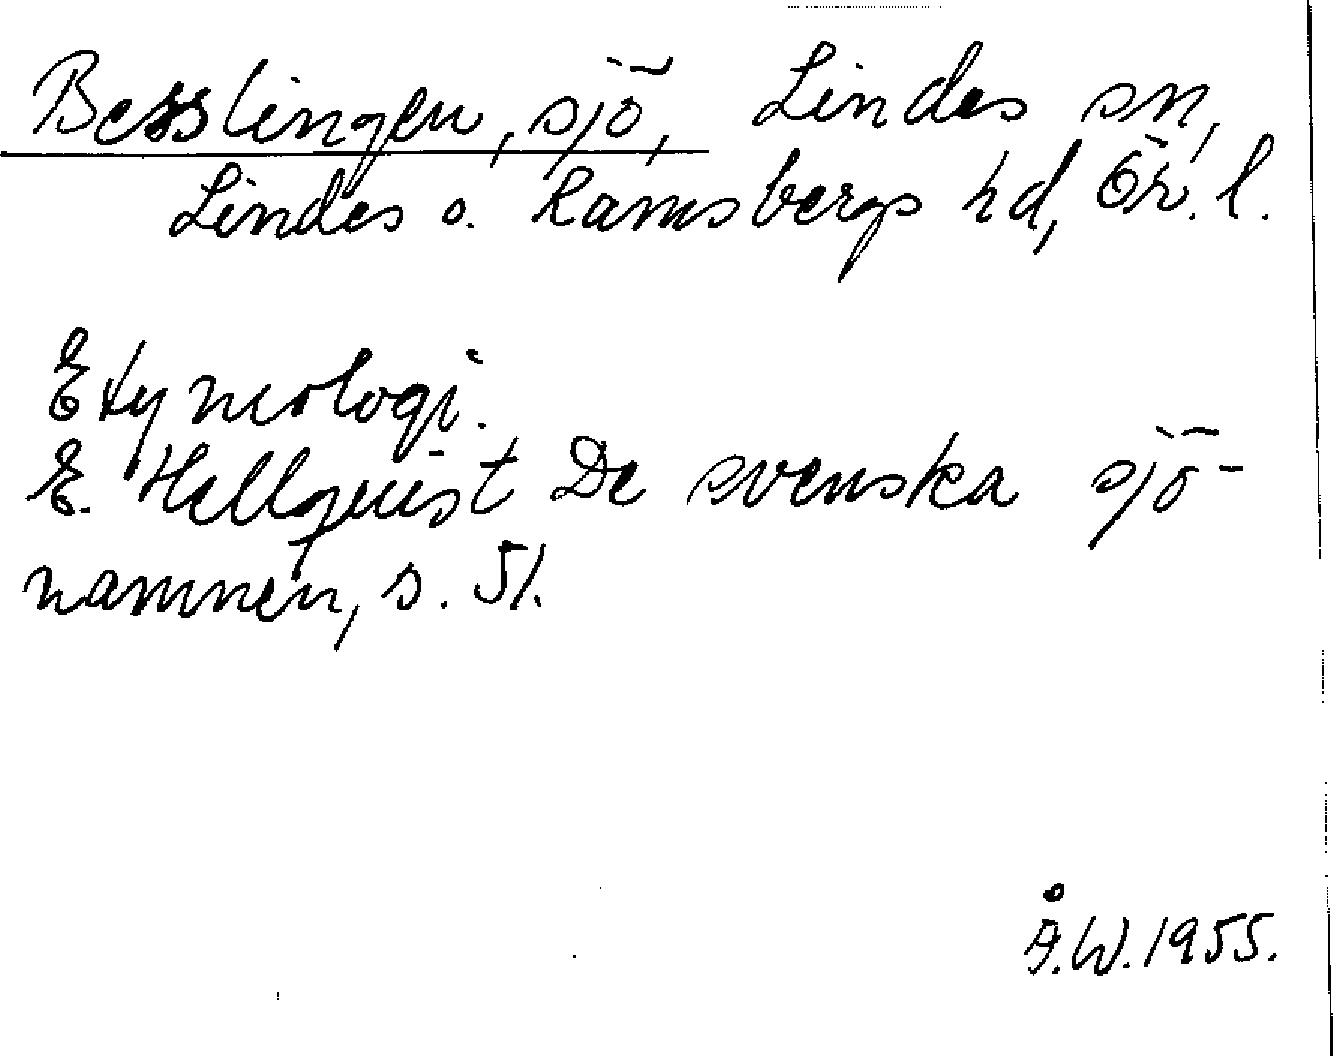 Besslingen, sjö, Lindes sn,
Lindes o. Ramsbergs hd, Ör. l.
Etymologi.
E. Hellquist De svenska sjö-
namnen, s. 51.
Å.W. 1955.